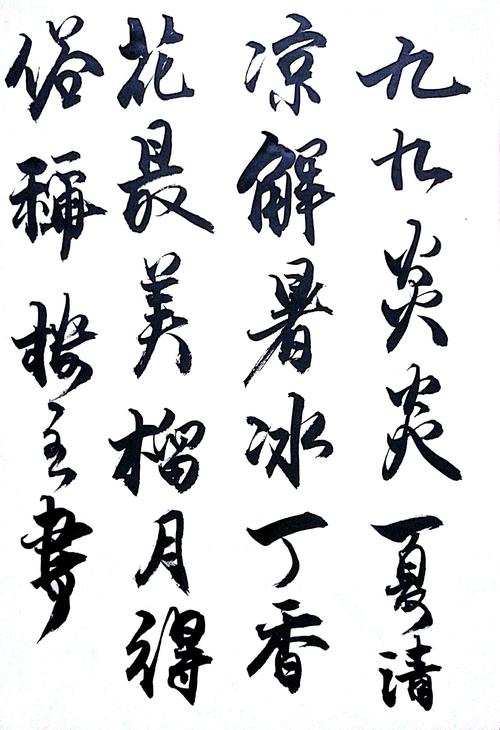 九九炎炎夏清
凉解暑冰丁香
花最美榴月得
俗稱楼主书